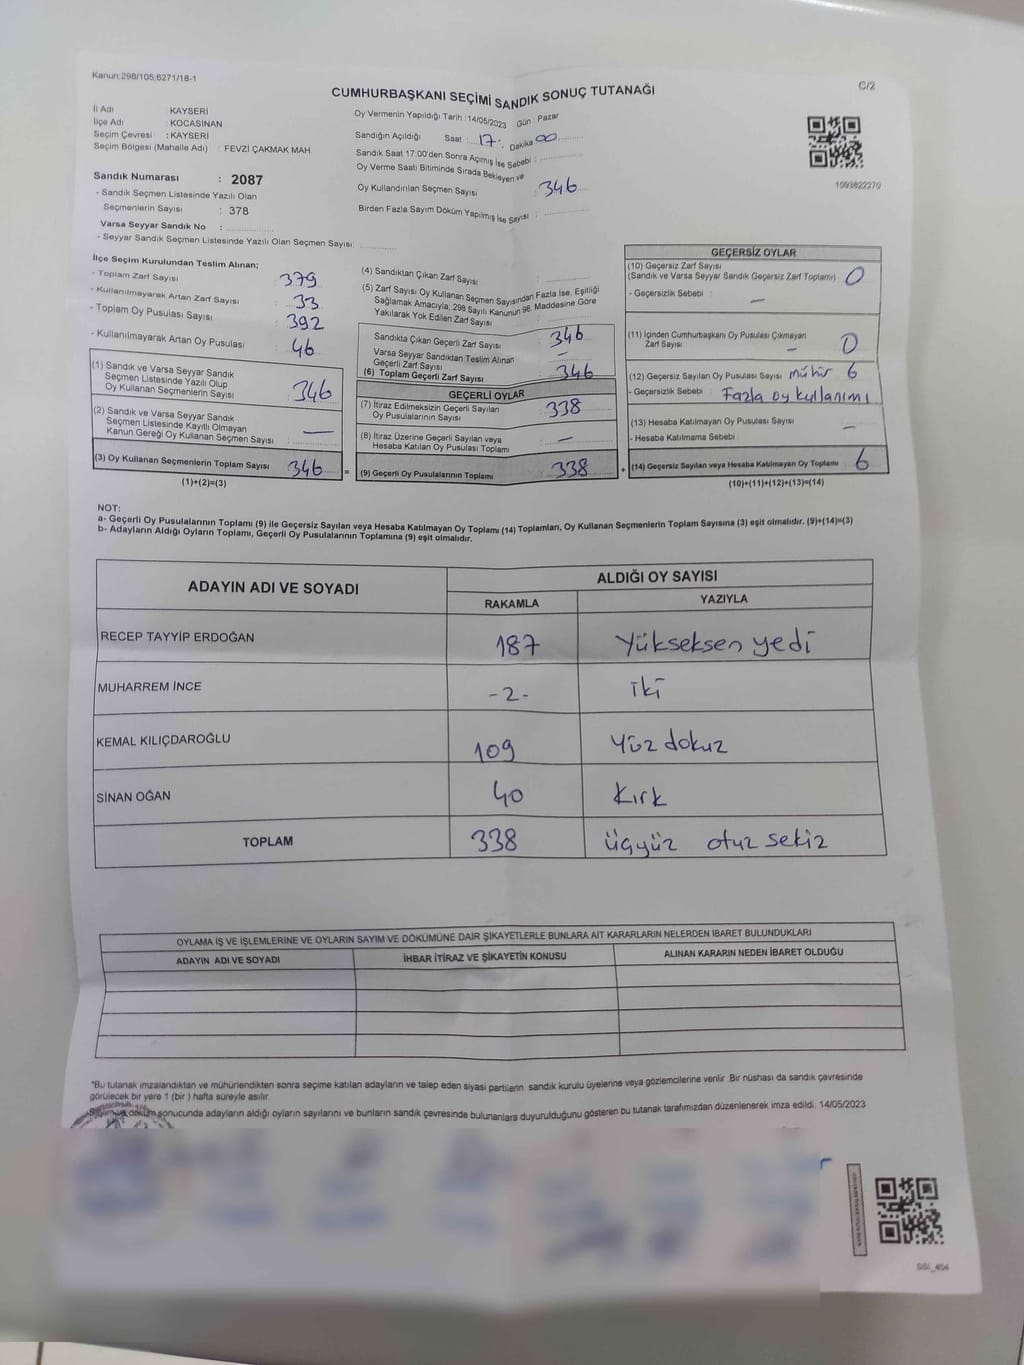 Kanun:298/105;6271/18-1
CUMHURBAŞKANI SEÇİMİ SANDIK SONUÇ TUTANAĞI
C/2
İl Adı : KAYSERİ
İlçe Adı : KOCASİNAN
Seçim Çevresi : KAYSERİ
Seçim Bölgesi (Mahalle Adı) : FEVZİ ÇAKMAK MAH.
Sandık Numarası : 2087
- Sandık Seçmen Listesinde Yazılı Olan
Seçmenlerin Sayısı : 378
Varsa Seyyar Sandık No :
- Seyyar Sandık Seçmen Listesinde Yazılı Olan Seçmen Sayısı:
Oy Vermenin Yapıldığı Tarih :14/05/2023 Gün : Pazar
Sandığın Açıldığı Saat : 17 : Dakika 00
Sandık Saat 17:00'den Sonra Açımış İse Sebebi :
Oy Verme Saati Bitiminde Sırada Bekleyen ve
Oy Kullandırılan Seçmen Sayısı : 346
Birden Fazla Sayım Döküm Yapılmış İse Sayısı :
1093822270
İlçe Seçim Kurulundan Teslim Alınan;
- Toplam Zarf Sayısı 379
- Kullanılmayarak Artan Zarf Sayısı 33
- Toplam Oy Pusulası Sayısı 392
- Kullanılmayarak Artan Oy Pusulası 46
(1) Sandık ve Varsa Seyyar Sandık
Seçmen Listesinde Yazılı Olup
Oy Kullanan Seçmenlerin Sayısı 346
(2) Sandık ve Varsa Seyyar Sandık
Seçmen Listesinde Kayıtlı Olmayan
Kanun Gereği Oy Kullanan Seçmen Sayısı —
(3) Oy Kullanan Seçmenlerin Toplam Sayısı 346 =
(1)+(2)=(3)
(4) Sandıktan Çıkan Zarf Sayısı :
(5) Zarf Sayısı Oy Kullanan Seçmen Sayısından Fazla İse, Eşitliği
Sağlamak Amacıyla, 298 Sayılı Kanunun 98. Maddesine Göre
Yakılarak Yok Edilen Zarf Sayısı
Sandıkta Çıkan Geçerli Zarf Sayısı : 346
Varsa Seyyar Sandıktan Teslim Alınan
Geçerli Zarf Sayısı —
(6) Toplam Geçerli Zarf Sayısı 346
GEÇERLİ OYLAR
(7) İtiraz Edilmeksizin Geçerli Sayılan
Oy Pusulalarının Sayısı : 338
(8) İtiraz Üzerine Geçerli Sayılan veya
Hesaba Katılan Oy Pusulası Toplamı : —
(9) Geçerli Oy Pusulalarının Toplamı : 338 +
GEÇERSİZ OYLAR
(10) Geçersiz Zarf Sayısı
(Sandık ve Varsa Seyyar Sandık Geçersiz Zarf Toplamı) : 0
- Geçersizlik Sebebi : —
(11) İçinden Cumhurbaşkanı Oy Pusulası Çıkmayan
Zarf Sayısı — 0
(12) Geçersiz Sayılan Oy Pusulası Sayısı mühür 6
- Geçersizlik Sebebi : Fazla oy kullanımı
(13) Hesaba Katılmayan Oy Pusulası Sayısı : —
- Hesaba Katılmama Sebebi :
(14) Geçersiz Sayılan veya Hesaba Katılmayan Oy Toplamı : 6
(10)+(11)+(12)+(13)=(14)
NOT:
a- Geçerli Oy Pusulalarının Toplamı (9) ile Geçersiz Sayılan veya Hesaba Katılmayan Oy Toplamı (14) Toplamları, Oy Kullanan Seçmenlerin Toplam Sayısına (3) eşit olmalıdır. (9)+(14)=(3)
b- Adayların Aldığı Oyların Toplamı, Geçerli Oy Pusulalarının Toplamına (9) eşit olmalıdır.
ADAYIN ADI VE SOYADI
ALDIĞI OY SAYISI
RAKAMLA YAZIYLA
RECEP TAYYİP ERDOĞAN 187 Yükseksen yedi
MUHARREM İNCE -2- iki
KEMAL KILIÇDAROĞLU 109 Yüz dokuz
SİNAN OĞAN 40 Kırk
TOPLAM 338 üçyüz otuz sekiz
OYLAMA İŞ VE İŞLEMLERİNE VE OYLARIN SAYIM VE DÖKÜMÜNE DAİR ŞİKAYETLERLE BUNLARA AİT KARARLARIN NELERDEN İBARET BULUNDUKLARI
ADAYIN ADI VE SOYADI İHBAR İTİRAZ VE ŞİKAYETİN KONUSU ALINAN KARARIN NEDEN İBARET OLDUĞU
*Bu tutanak imzalandıktan ve mühürlendikten sonra seçime katılan adayların ve talep eden siyasi partilerin sandık kurulu üyelerine veya gözlemcilerine verilir. Bir nüshası da sandık çevresinde
görülecek bir yere 1 (bir) hafta süreyle asılır.
döküm sonucunda adayların aldığı oyların sayılarını ve bunların sandık çevresinde bulunanlara duyurulduğunu gösteren bu tutanak tarafımızdan düzenlenerek imza edildi. 14/05/2023